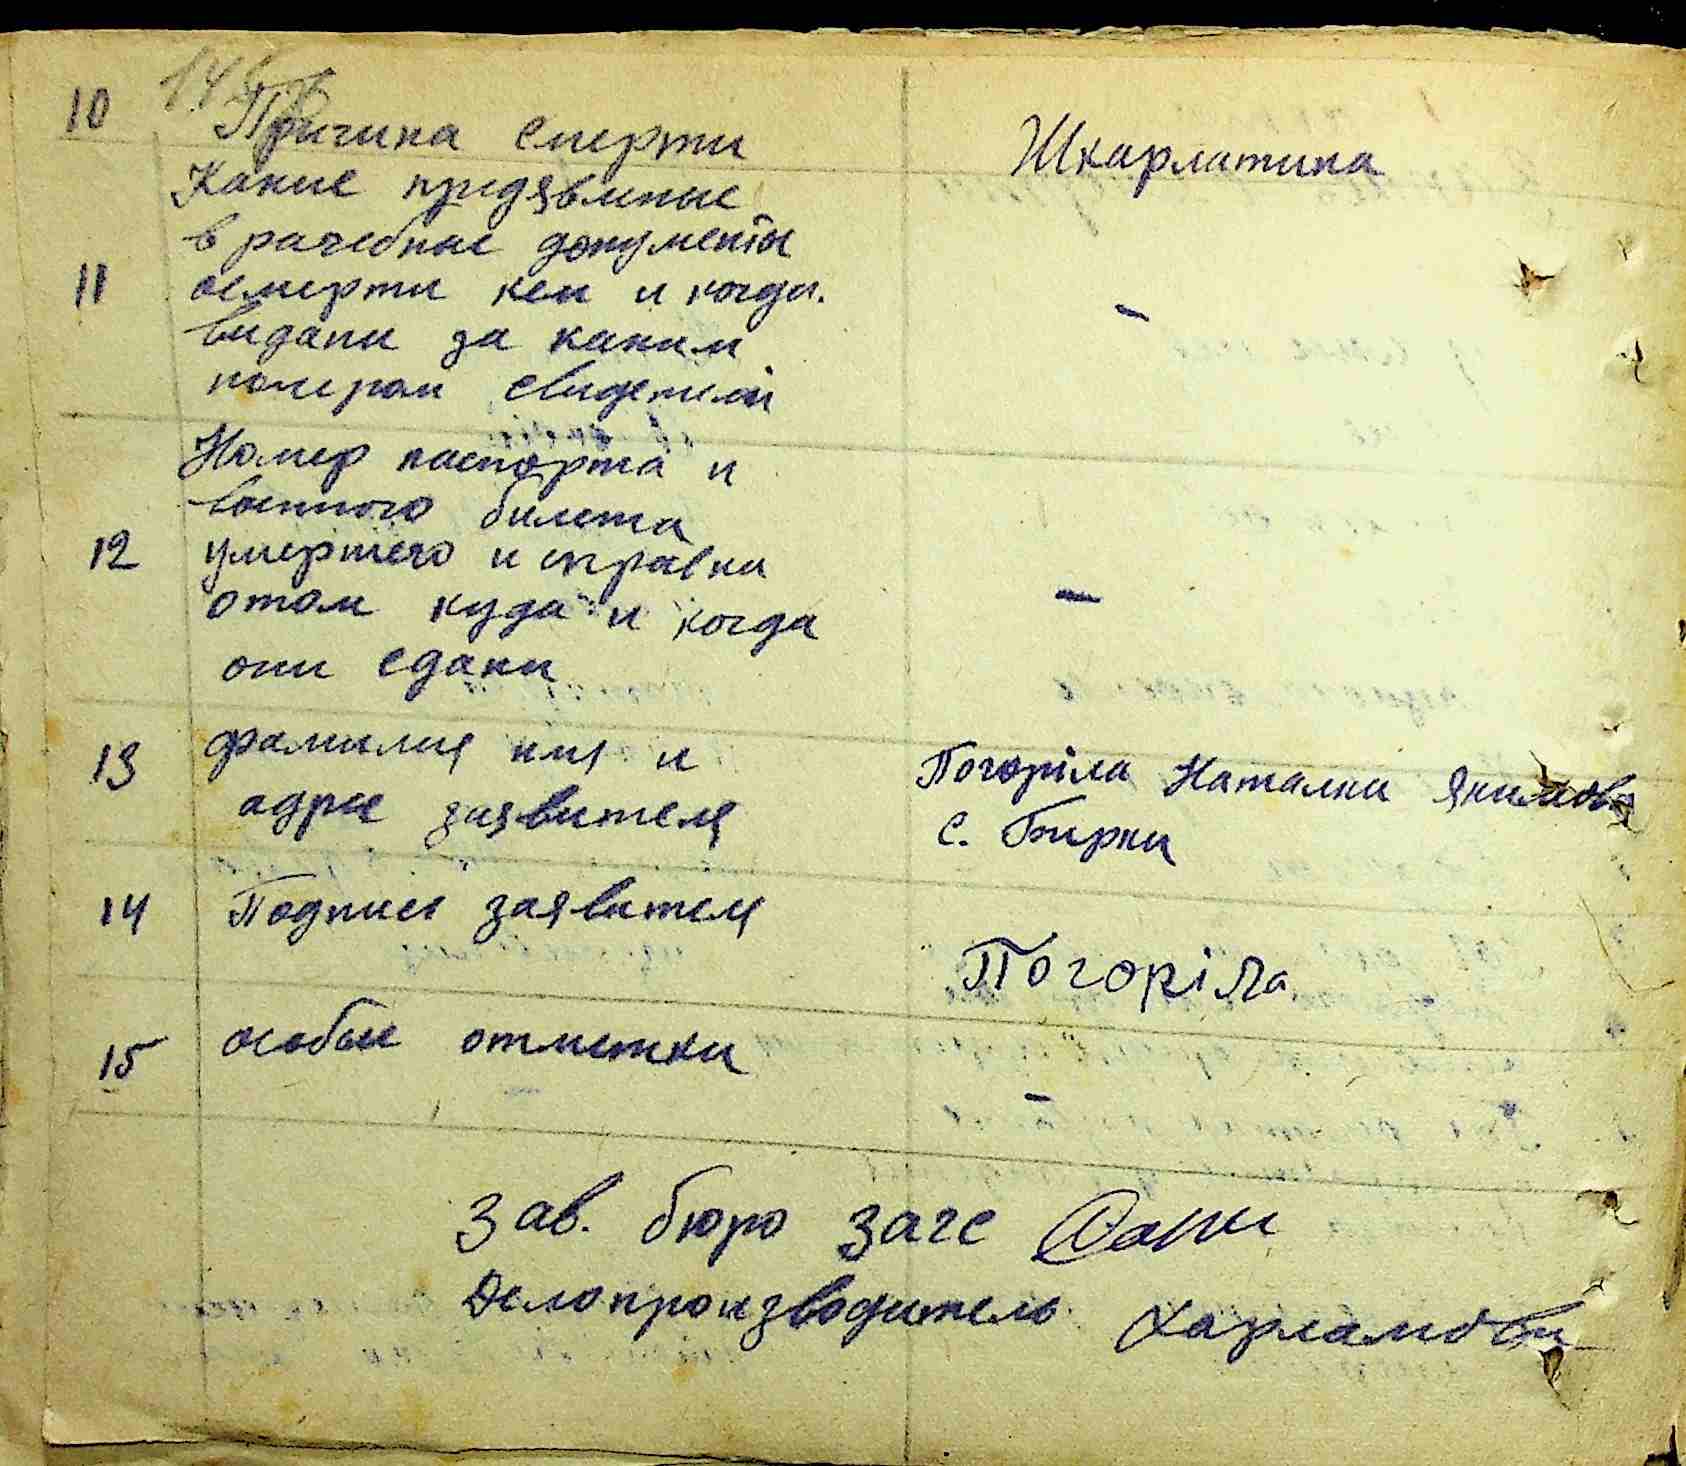 10 Причина смерти Шкарлатина
Какие предявленые
врачебные документы
11 осмерти кем и когда. –
видани за каким
номером свидетелй
Номер паспорта и
военного билета
12 умершего и справка
отом куда и когда –
они сдани
13 фамилия имя и Погоріла Наталки Якимовн
адрес заявителя с. Бирки
14 Подпись заявителя Погоріла
15 особые отметки –
Зав. бюро загс
Делопроизводитель Харламова